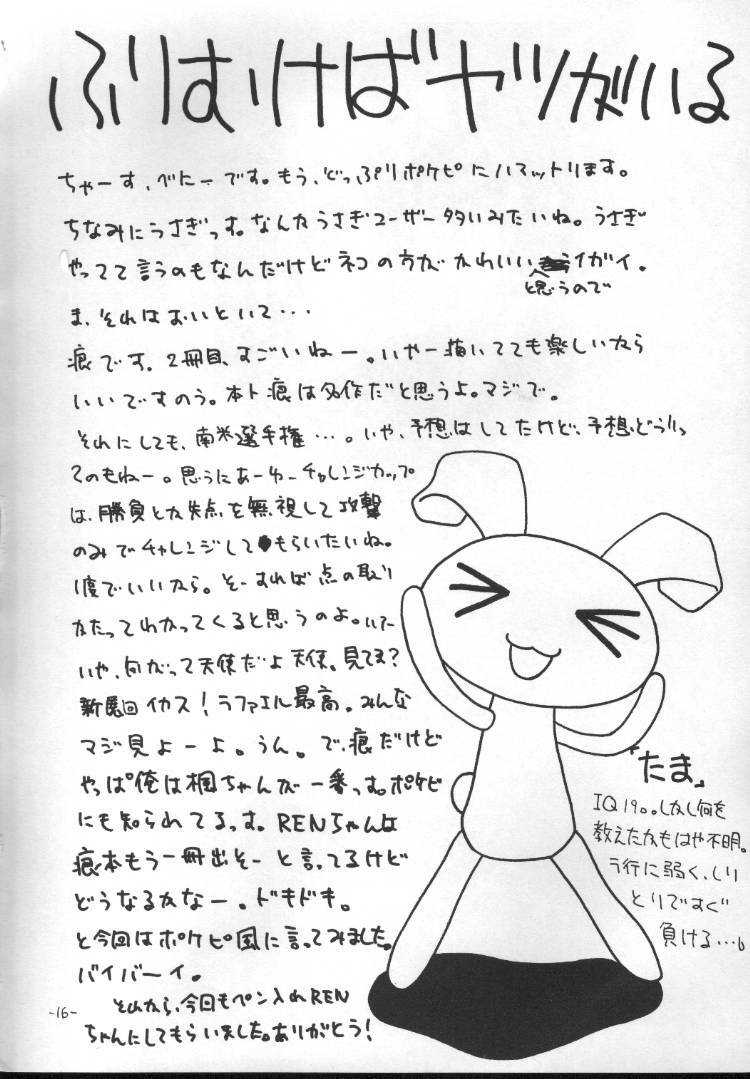 ふりむけばヤツがいる
ちゃーす、べにーです。もう、どっぷりポケピにハマットります。
ちなみにうさぎっす。なんかうさぎユーザー多いみたいね。うさぎ
やってて言うのもなんだけどネコの方がかわいい
と思うのでイガイ。
ま、それはおいといて・・・
痕です。2冊目、すごいねー。いやー描いてても楽しいから
いいですのう。本ト痕は名作だと思うよ。マジで。
それにしても、南米選手権・・・。いや、予想はしてたけど、予想どうりっ
てのもねー。思うにあーゆーチャレンジカップ
は、勝負とか失点を無視して攻撃
のみでチャレンジしてもらいたいね。
1度でいいから。そーすれば点の取り
かたってわかってくると思うのよ。
いや、何がって天使だよ天使。見てる?
イカス!ラファエル最高。みんな
マジ見よーよ。うん。で、痕だけど
やっぱ俺は楓ちゃんが一番っす。ポケピ
にも知られてるっす。RENちゃんは
痕本もう一冊出そーと言ってるけど
どうなるかなー。ドキドキ。
と今回はポケピ風に言ってみました。
バイバーイ。
それから、今回もペン入れREN
ちゃんにしてもらいました。ありがとう!
「たま」
IQ190。しかし何を
教えたかもはや不明。
ラ行に弱く、しり
とりですぐ
負ける…。
-16-